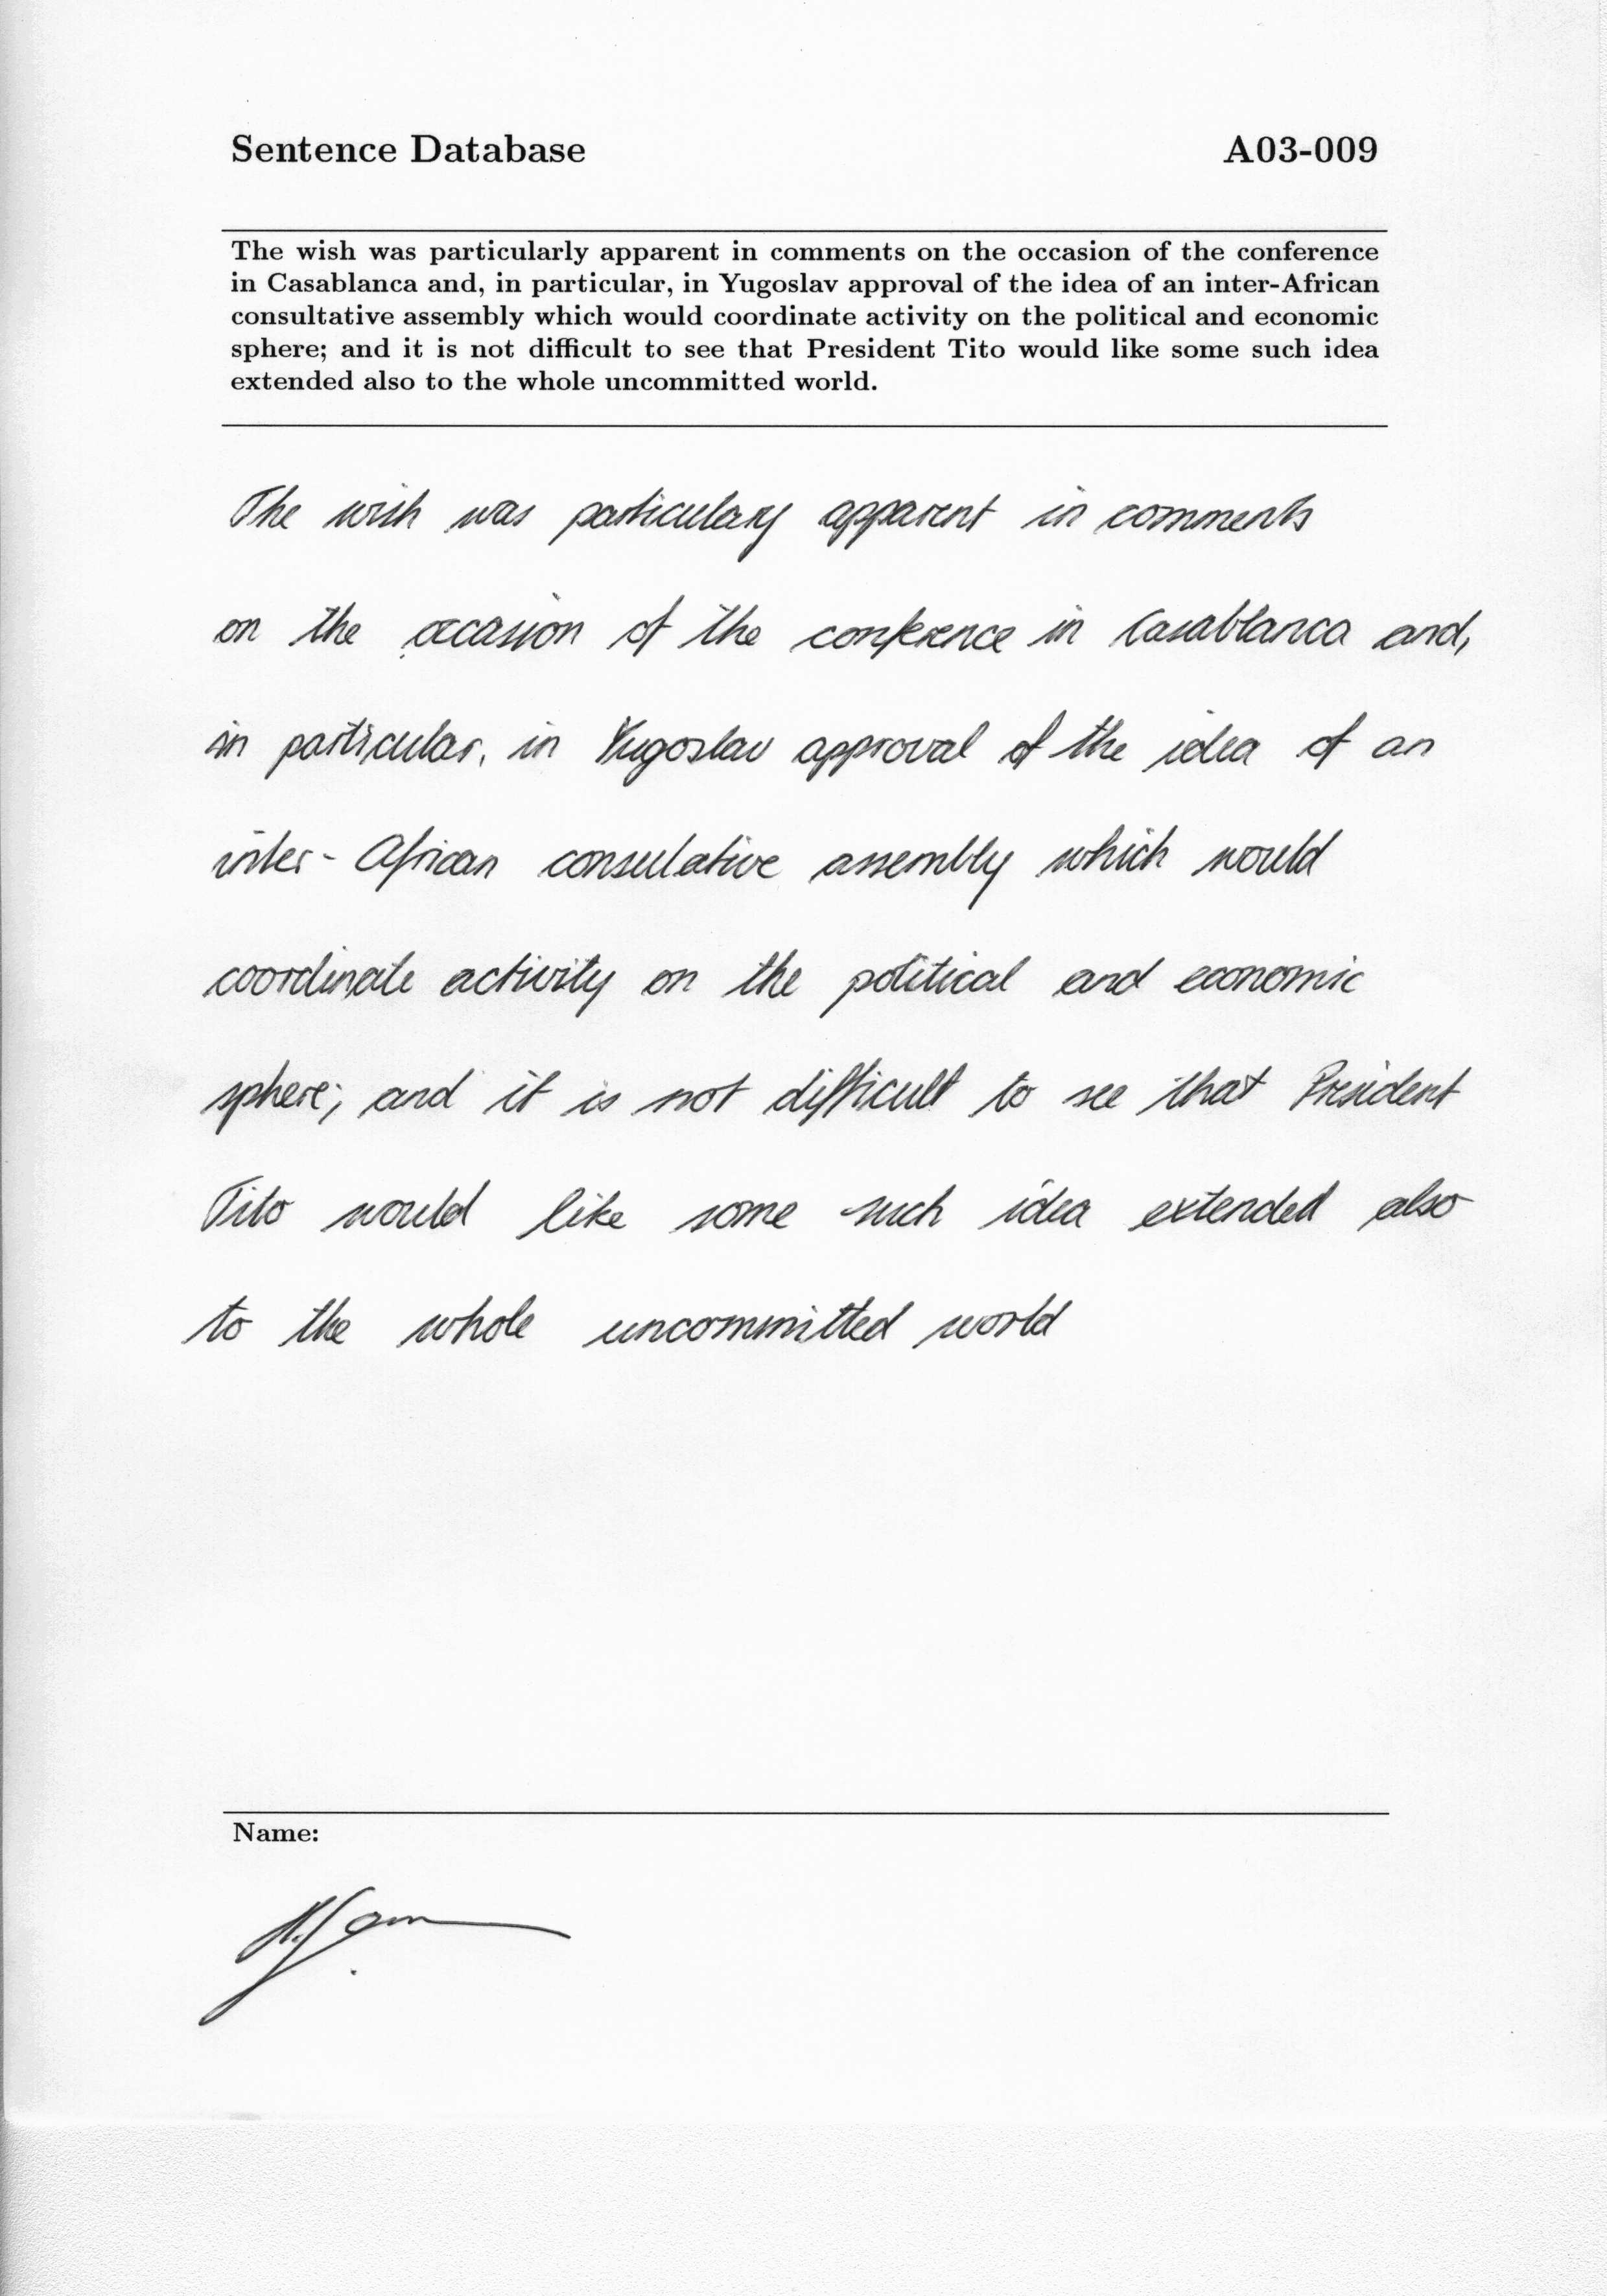 Sentence Database A03-009
The wish was particularly apparent in comments on the occasion of the conference
in Casablanca and, in particular, in Yugoslav approval of the idea of an inter-African
consultative assembly which would coordinate activity on the political and economic
sphere; and it is not difficult to see that President Tito would like some such idea
extended also to the whole uncommitted world.
The wish was particulary apparent in comments
on the occasion of the conference in Casablanca and,
in particular, in Yugoslav approval of the idea of an
inter-African consulative assembly which would
coordinate activity on the political and economic
sphere; and it is not difficult to see that President
Tito would like some such idea extended also
to the whole uncommitted world
Name: